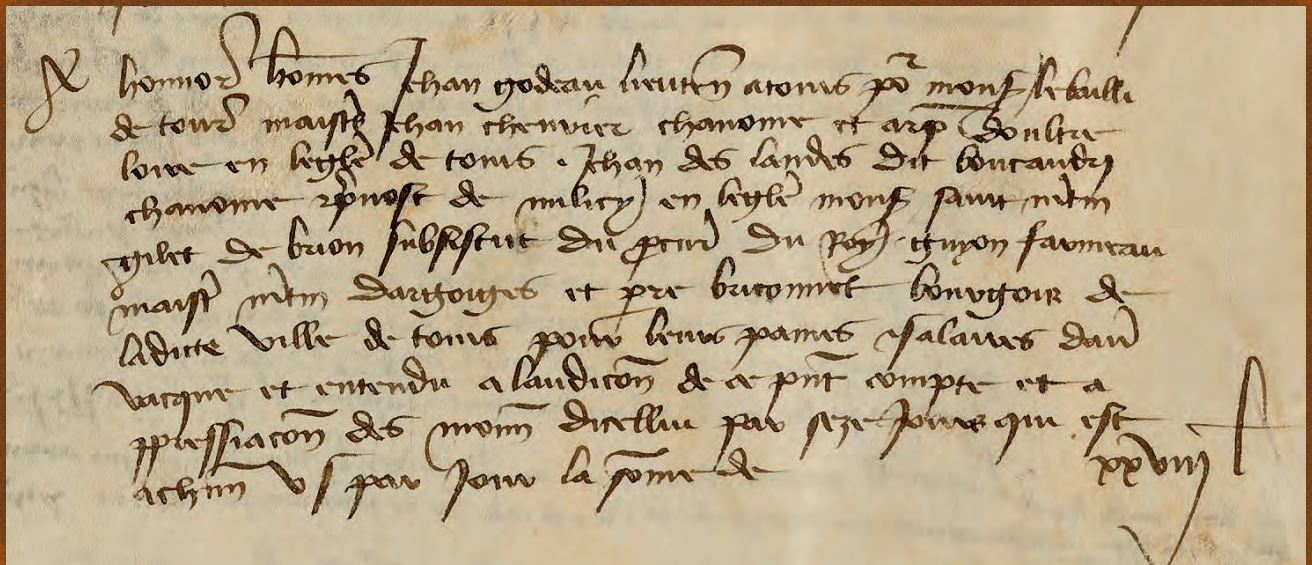 A honnor hommes Jehan godeau lieuten a tours por mons le bailli
de tour maistres Jehan chenvier chanoine et arp doultre
loire en leglé de tours . Jehan des landes dit boucaudry
chanoine prevost de milicy en leglé mons saint mtin
gilet de brion substitut du pcur du Roy guyon farineau
maist mtin dargouges et pre briconnet bourgois de
ladicte ville de tours pour leurs paines salaires davr
vacque et entendu a laudicon de ce pnt compte et a
des dicellui par seze Jours qui est
achun v s par Jour la some de xxviij